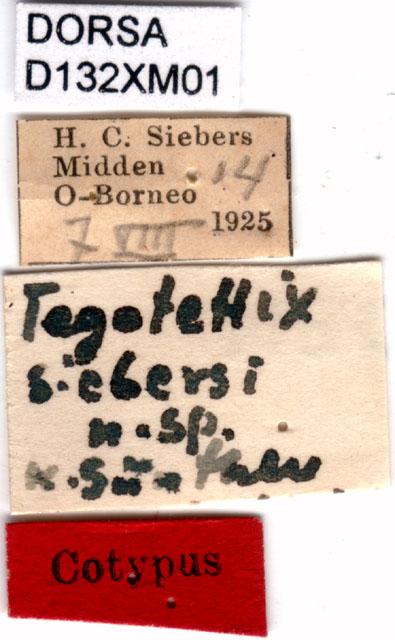 DORSA
D132XM01
H. C. Siebers
Midden 14
O-Borneo
7 VIII 1925
Tegotettix
siebersi
n.sp.
K. Günther
Cotypus